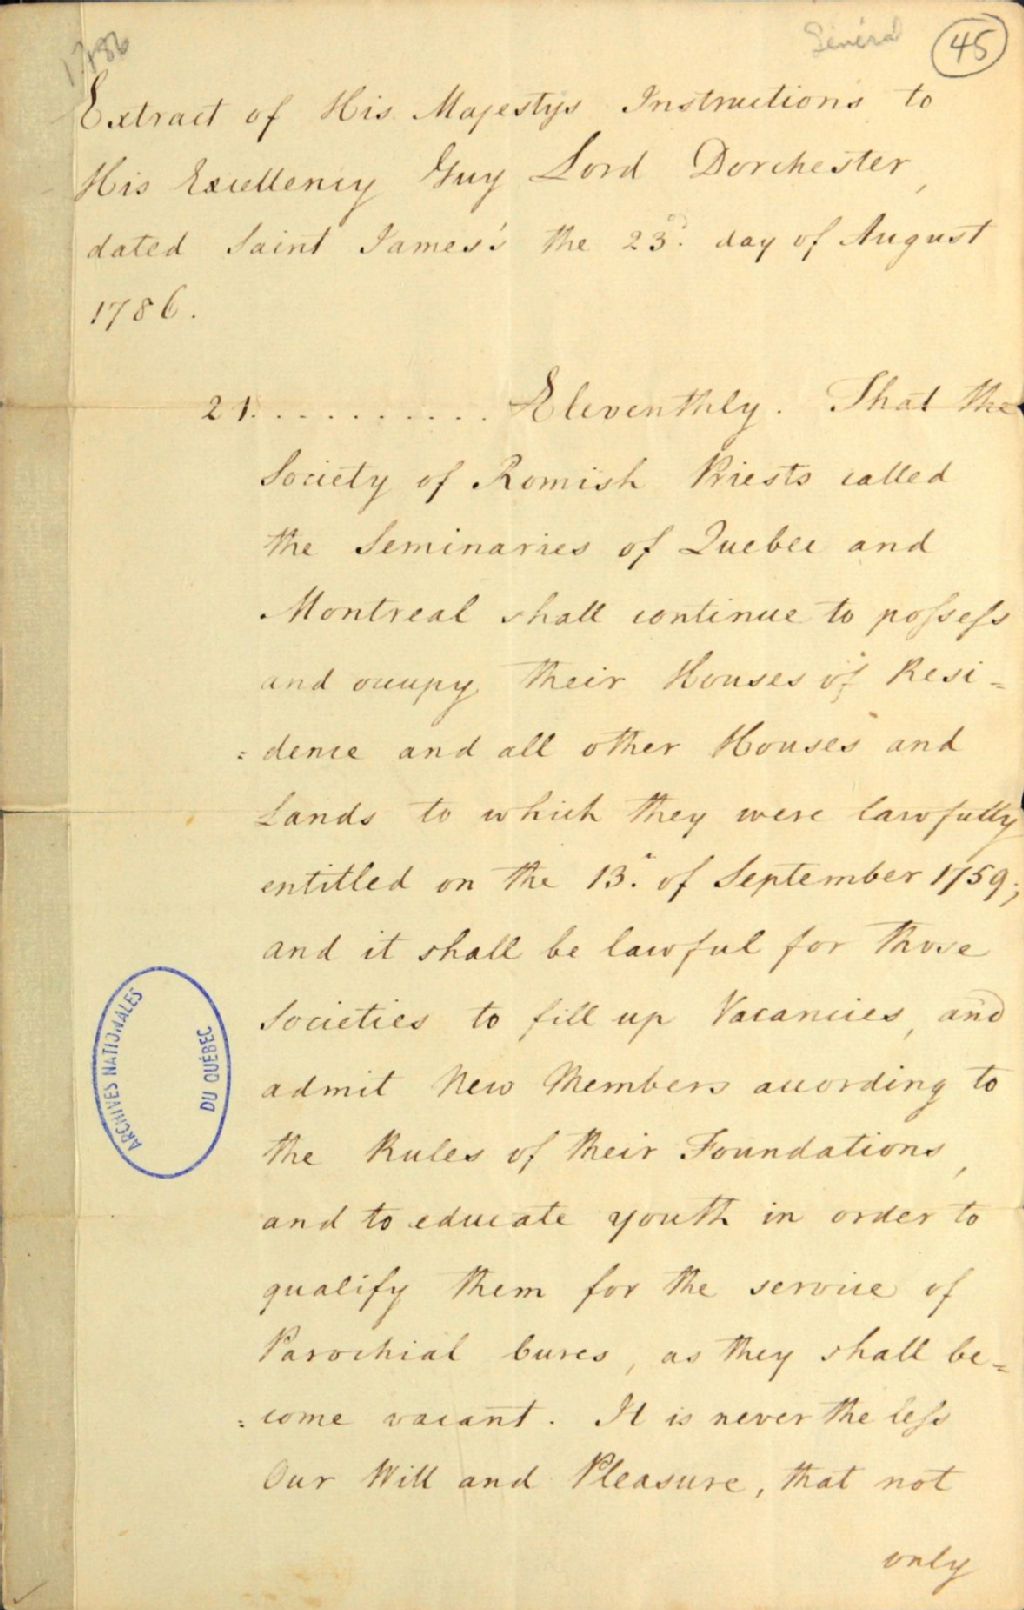 1786
Général
45
Extract of His Majestys Instructions to
His Excellency Guy Lord Dorchester,
dated Saint James's the 23d. day of August
1786.
21. . . . . . . . . . . Eleventhly. That the
Society of Romish Priests called
the Seminaries of Quebec and
Montreal shall continue to possess
and occupy their Houses of Resi=
=dence and all other Houses and
Lands to which they were lawfully
entitled on the 13. of September 1759;
and it shall be lawful for those
Societies to fill up Vacancies, and
admit New Members according to
the Rules of their Foundations,
and to educate youth in order to
qualify them for the service of
Parochial Cures, as they shall be=
=come vacant. It is never the less
Our Will and Pleasure, that not
only
ARCHIVES NATIONALES
DU QUÉBEC